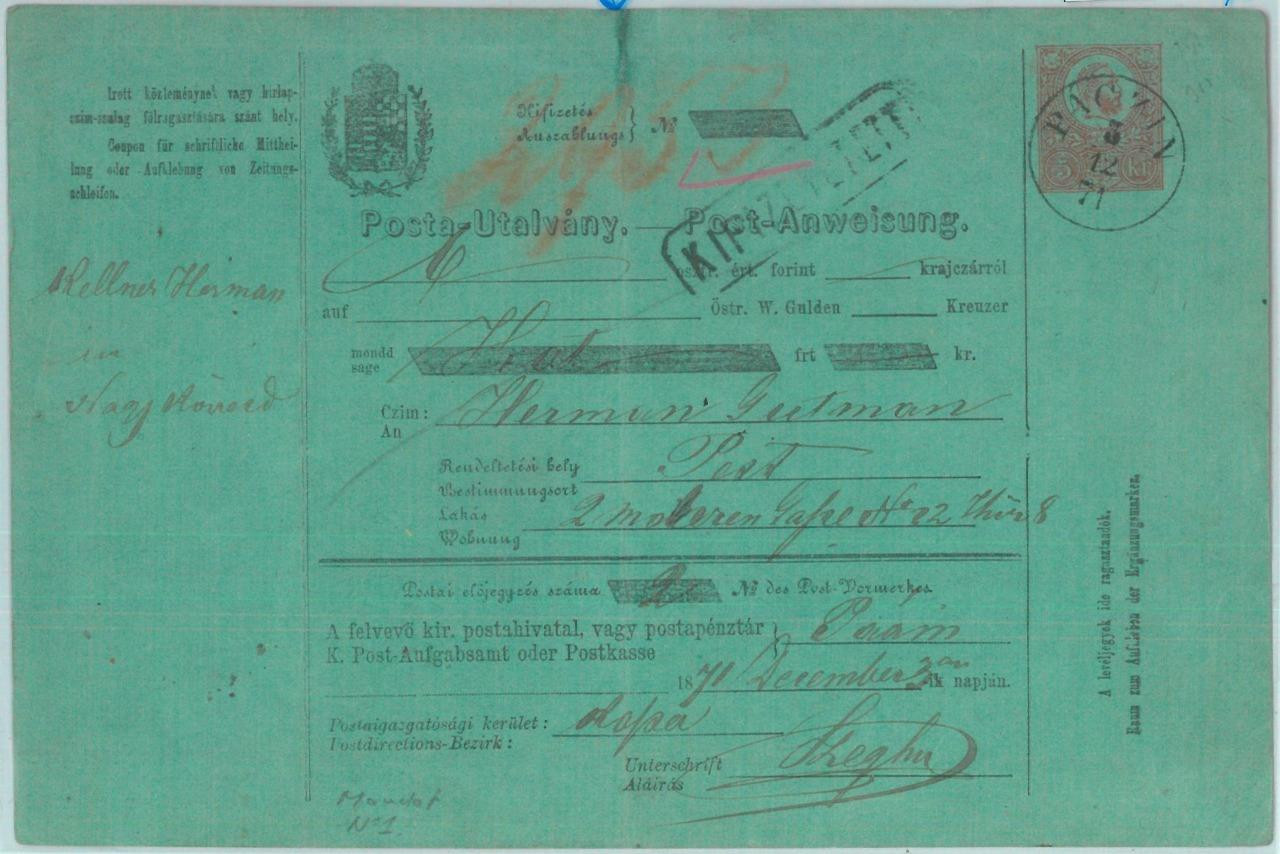 Irott közleménynek vagy hirlap-
czim-szalag fölragasztására szánt hely.
Coupon für schriftliche Mitthei-
lung oder Aufklebung von Zeitungs-
schleifen.
Kellner Herman
in
Nagy
Kifizetés
Auszahlungs } №
KIFIZETTETETT
Posta-Utalvány. — Post-Anweisung.
6 osztr. ért. forint krajczárról
auf Östr. W. Gulden Kreuzer
mondd
sage Hat frt kr.
Czim:
An Herman Gutman
Rendeltetési hely
Bestimmungsort Pest
Lakás
Wohnung 2 moheren Gasse No 22 Thür 8
Postai előjegyzés száma 2 № des Post-Vormerkes.
A felvevő kir. postahivatal, vagy postapénztár }
K. Post-Aufgabsamt oder Postkasse
1871 December 3 ik napján.
Postaigazgatósági kerület:
Postdirections-Bezirk:
Unterschrift
Aláirás
Mandat
No 1
5 kr
3
12
71
A levéljegyek ide ragasztandók.
Raum zum Aufkleben der Ergänzungsmarken.